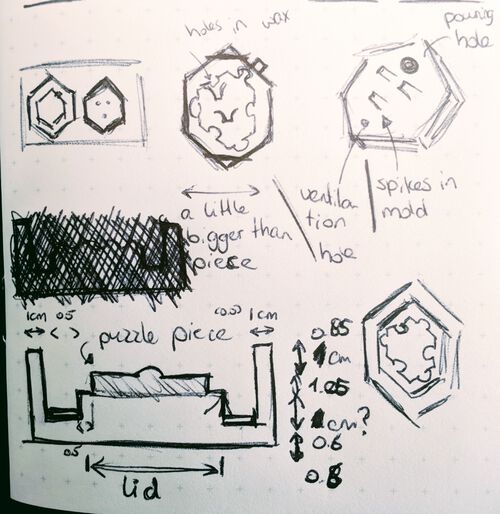 holes in wax
pouring
hole
a little
bigger than
piece
ventilation
tion
hole
spikes in
mold
1cm 0.5
1cm
puzzle piece
0.85
1cm
1.05
1cm?
0.6
0.8
0.5
lid